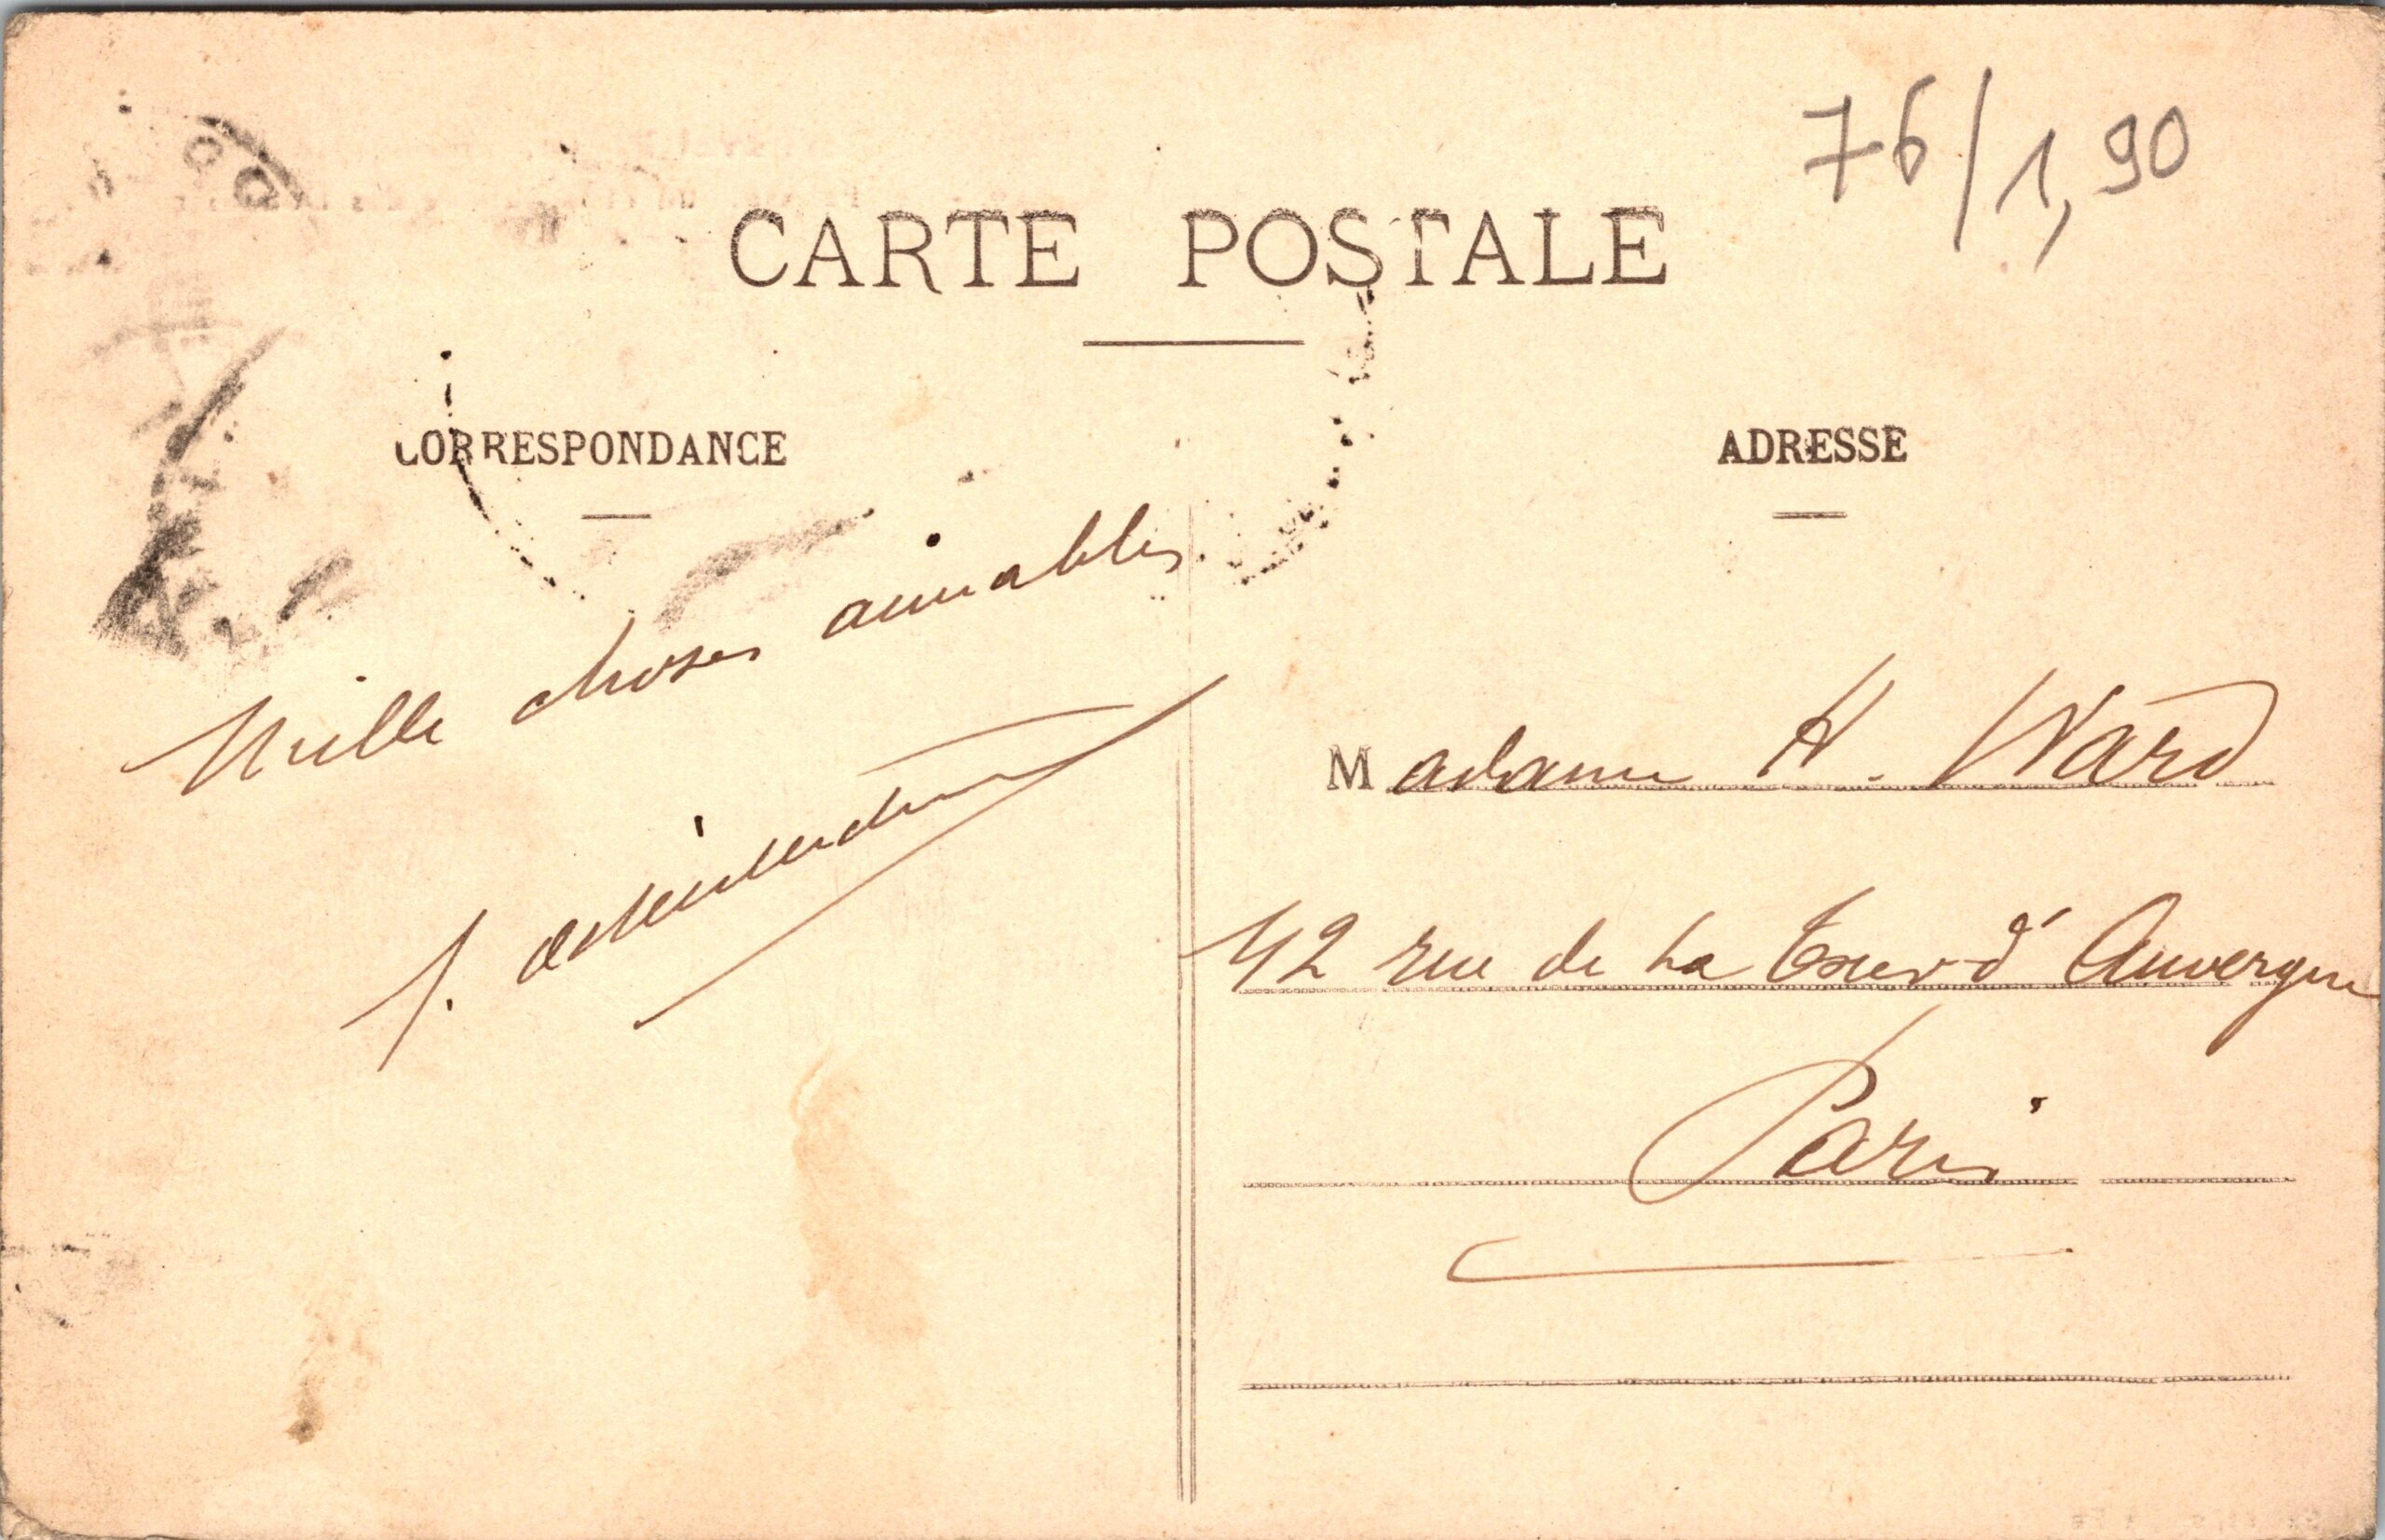 76/1,90
CARTE POSTALE
CORRESPONDANCE
ADRESSE
Mille choses aimables
Madame H. Ward
42 rue de La Tour d'Auvergne
Paris